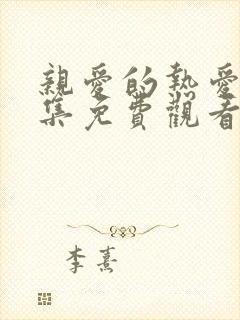 親愛的熱愛
集免費觀看
李熹